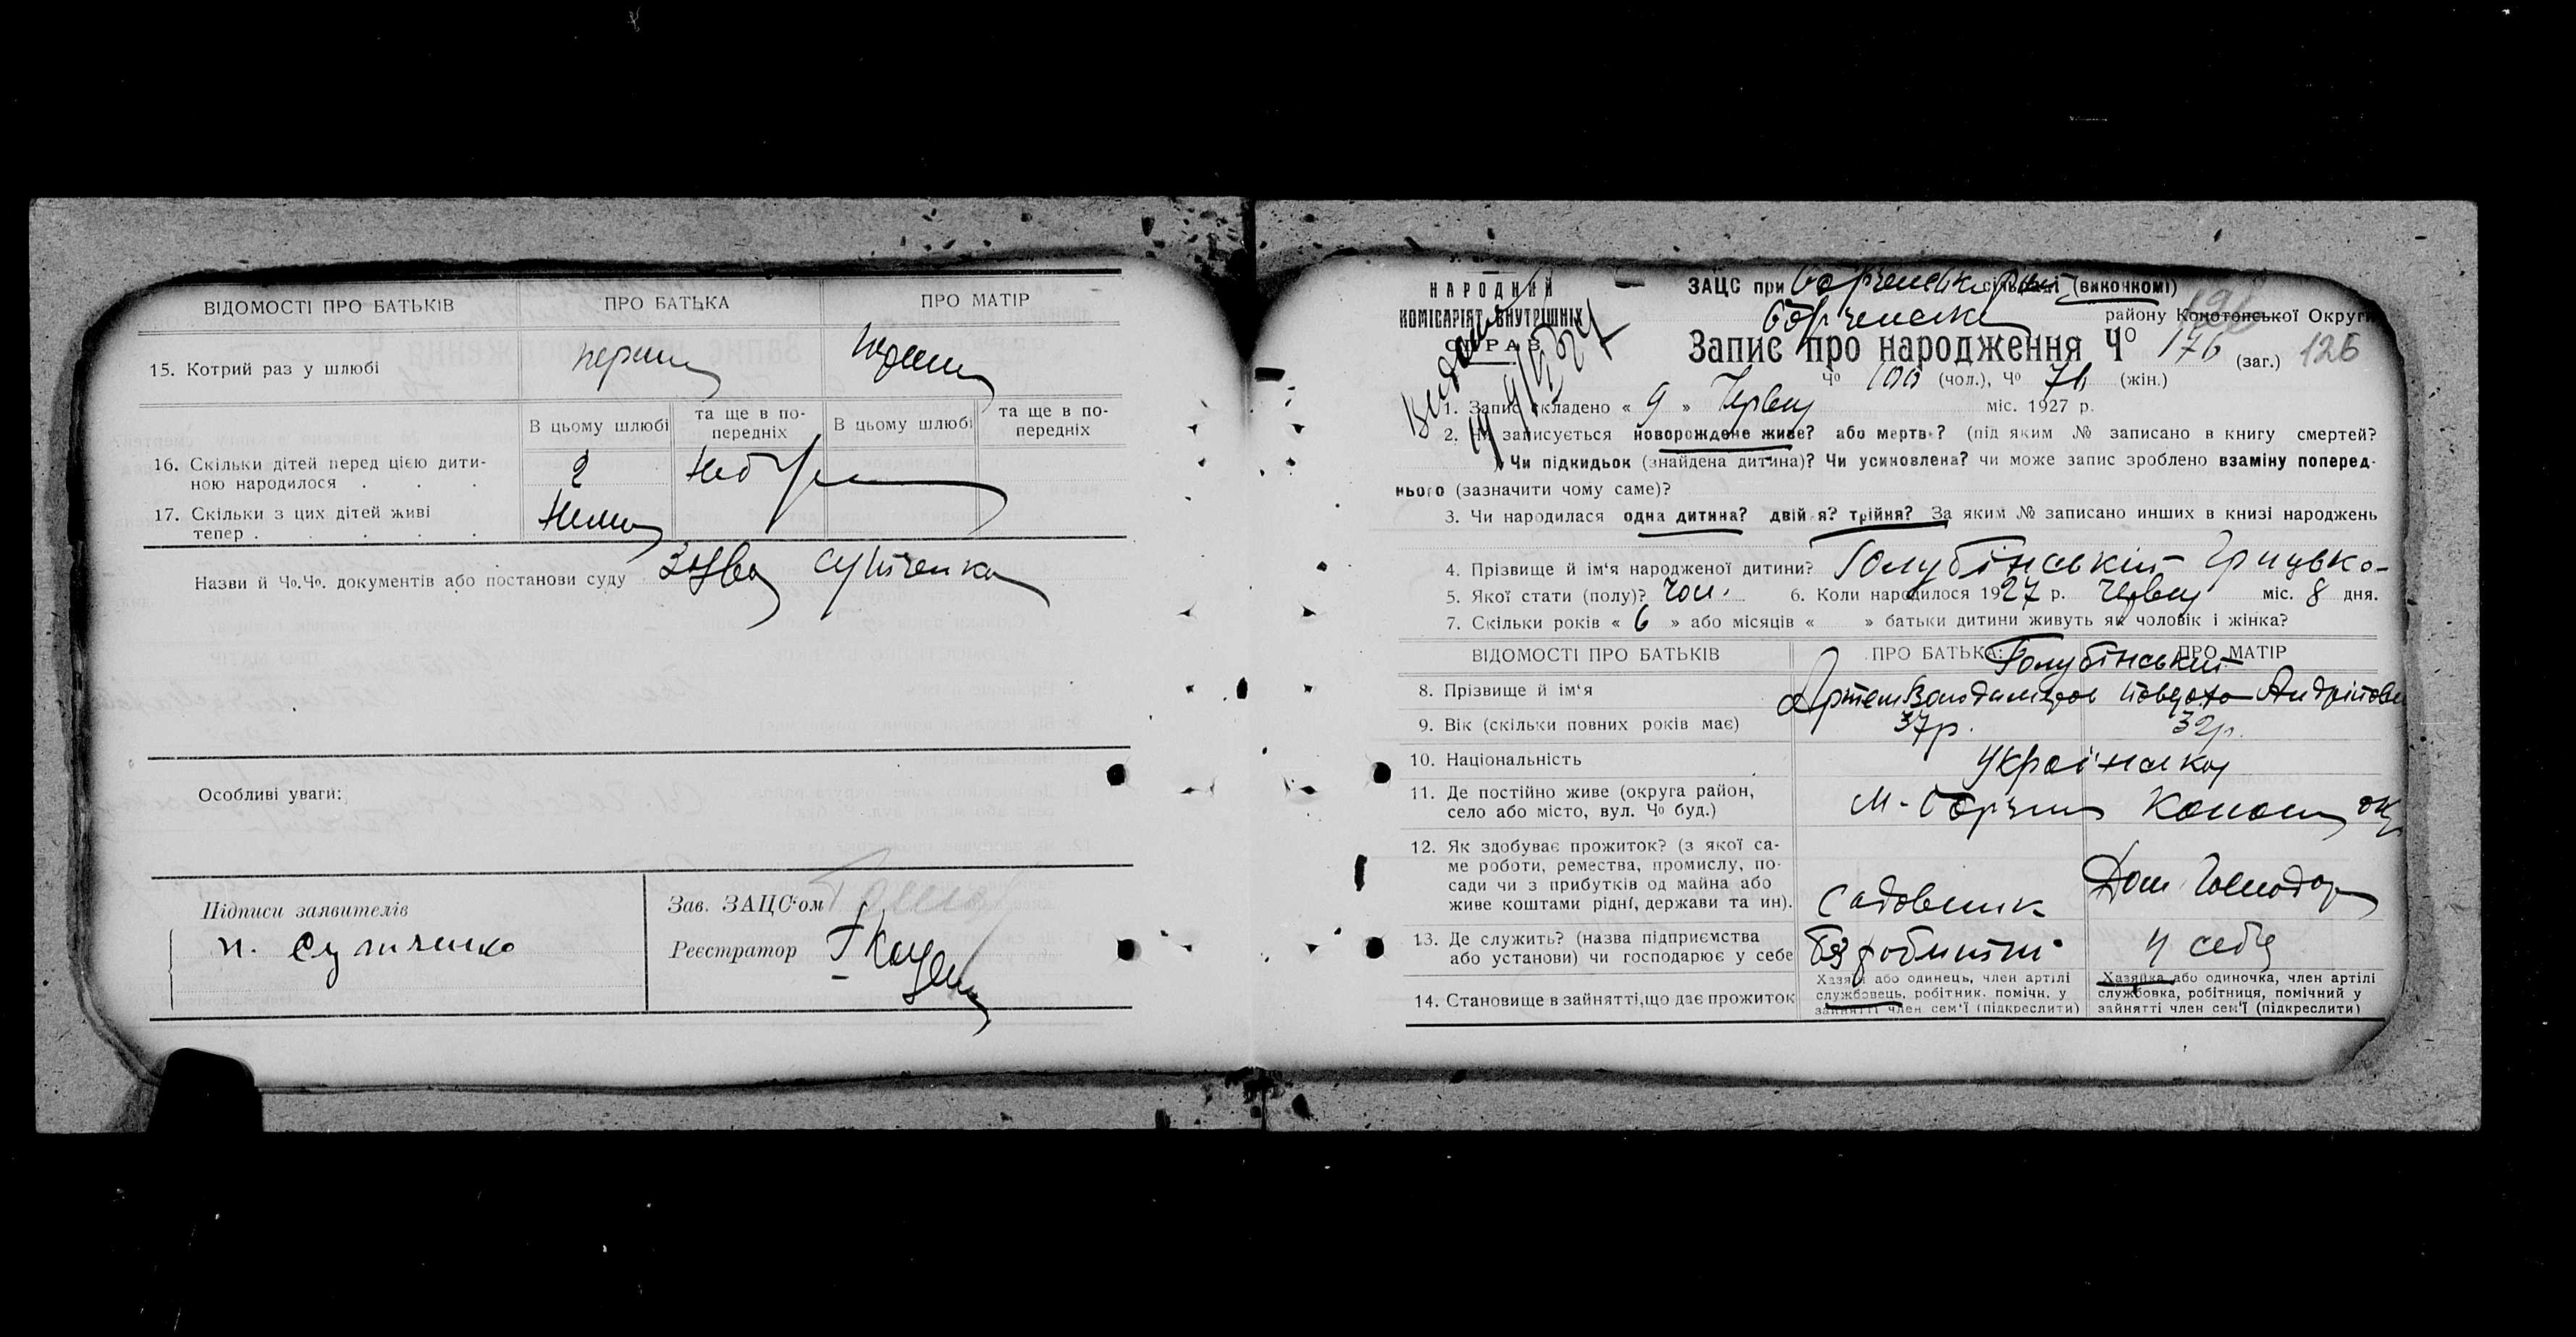 ВІДОМОСТІ ПРО БАТЬКІВ
ПРО БАТЬКА
ПРО МАТІР
15. Котрий раз у шлюбі
перший
В цьому шлюбі
та ще в по-
передніх
В цьому шлюбі
та ще в по-
передніх
16. Скільки дітей перед цією дити-
ною народилося . . .
2
17. Скільки з цих дітей живі
тепер . . . . .
Назви й Чо.Чо. документів або постанови суду
Особливі уваги:
Підписи заявителів
Зав. ЗАЦС'ом
Реєстратор
НАРОДНИЙ
КОМІСАРІЯТ ВНУТРІШНІХ
СПРАВ
ЗАЦС при сільраді (викочкомі)
району Конотопської Округи
Запис про народження Чо 176 (заг.) 126
Чо 100 (чол.), Чо 76 (жін.)
1. Запис складено « 9 » Червня міс. 1927 р.
2. Чи записується новорождене живе? або мертве? (під яким № записано в книгу смертей?
) Чи підкидьок (знайдена дитина)? Чи усиновлена? чи може запис зроблено взаміну поперед-
нього (зазначити чому саме)?
3. Чи народилася одна дитина? двійня? трійня? За яким № записано инших в книзі народжень
4. Прізвище й ім'я народженої дитини? Голубінський Грицько
5. Якої стати (полу)? Чол. 6. Коли народилося 1927 р. Червня міс. 8 дня.
7. Скільки років « 6 » або місяців « » батьки дитини живуть як чоловік і жінка?
ВІДОМОСТІ ПРО БАТЬКІВ
ПРО БАТЬКА:
ПРО МАТІР
Голубінський
8. Прізвище й ім'я
Артем Володимиров
9. Вік (скільки повних років має)
37р.
32р.
10. Національність
Українська
11. Де постійно живе (округа район,
село або місто, вул. Чо буд.)
М. Борзна Коноп. ок.
12. Як здобуває прожиток? (з якої са-
ме роботи, ремества, промислу, по-
сади чи з прибутків од майна або
живе коштами рідні, держави та ин).
Садовник
Дом. Господар
13. Де служить? (назва підприємства
або установи) чи господарює у себе
Безробітний
У себе
14. Становище в зайнятті, що дає прожиток
Хазяїн або одинець, член артілі
службовець, робітник. помічн. у
зайнятті член сем'ї (підкреслити)
Хазяйка або одиночка, член артілі
службовка, робітниця, помічний у
зайнятті член сем'ї (підкреслити)